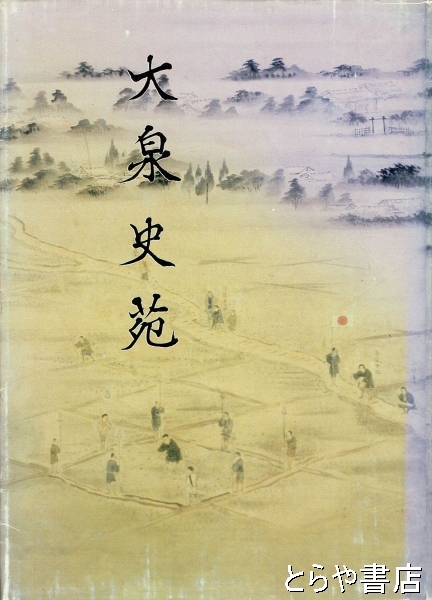 大泉史苑
とらや書店